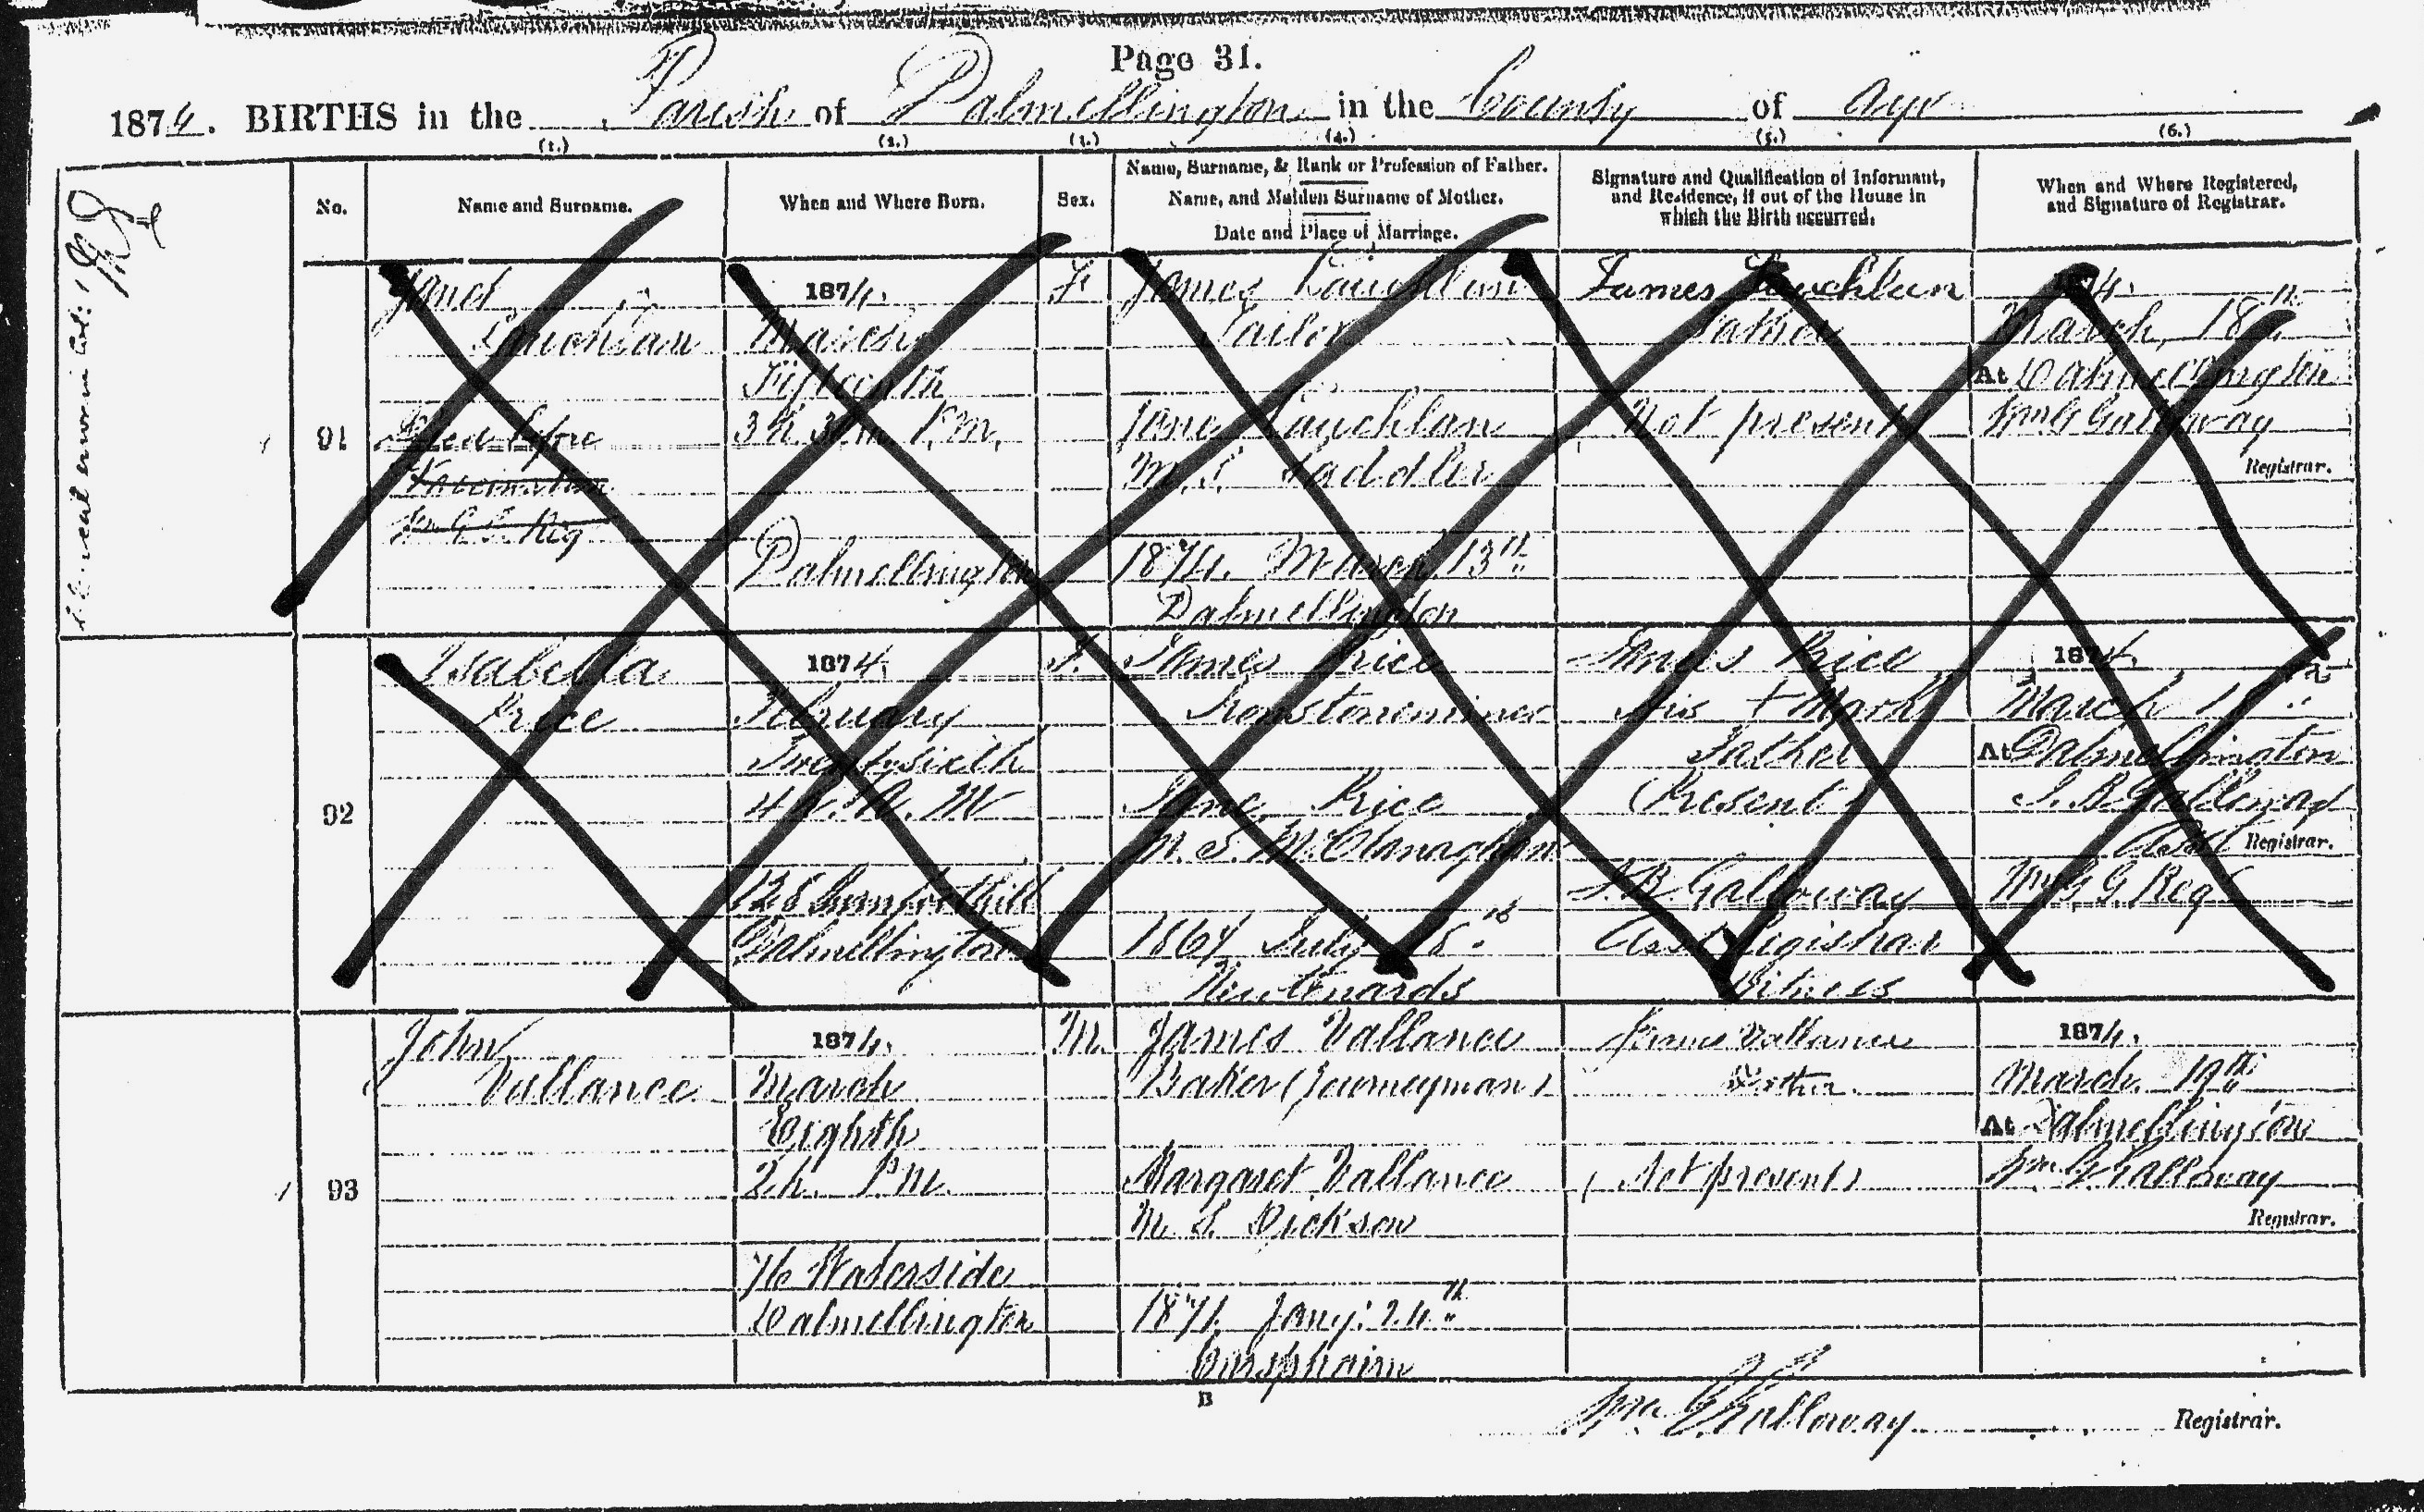 Page 31.
1874. BIRTHS in the Parish of Dalmellington in the County of Ayr
(1.) (2.) (3.) (4.) (5.) (6.)
No.
Name and Surname.
When and Where Born.
Sex.
Name, Surname, & Rank or Profession of Father.
Name, and Maiden Surname of Mother.
Date and Place of Marriage.
Signature and Qualification of Informant,
and Residence, if out of the House in
which the Birth occurred.
When and Where Registered,
and Signature of Registrar.
91
Janet
Lauchlan
Died before
Vaccination
Wm G. G. Reg
1874.
March
Fifteenth
3h 30m P.M.
Dalmellington
F
James Lauchlan
Tailor
Jane Lauchlan
M.S. Saddler
1874. March 13th
Dalmellington
James Lauchlan
Father
(Not present)
1874.
March, 18th
At Dalmellington
Wm G Galloway
Registrar.
92
Isabella
Price
1874.
February
Twentysixth
4h. A. M
128
Dalmellington
F.
James Price
Ironstoneminer
Jane Price
M. S. McClanaghan
1864 July 18th
Newtonards
James Price
His + Mark
Father
(Present)
J. B. Galloway
Asst Registrar
Witness
1874.
March 18th
At Dalmellington
J. B Galloway
Asst Registrar.
Wm G G. Reg
93
John
Vallance
1874.
March
Eighth
2h. P.M.
76 Waterside
Dalmellington
M.
James Vallance
Baker (Journeyman)
Margaret Vallance
M. S. Dickson
1871. Jany: 24th
Carsphairn
James Vallance
Father.
(Not present)
1874.
March 19th
At Dalmellington
Wm G Galloway
Registrar.
B
Wm G Galloway Registrar.